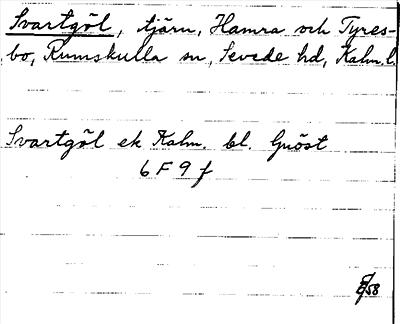 Svartgöl, tjärn, Hamra och Tyres-
bo, Rumskulla sn, Sevede hd, Kalm. l.
Svartgöl ek Kalm. bl. Gnöst
6 F 9 f
58